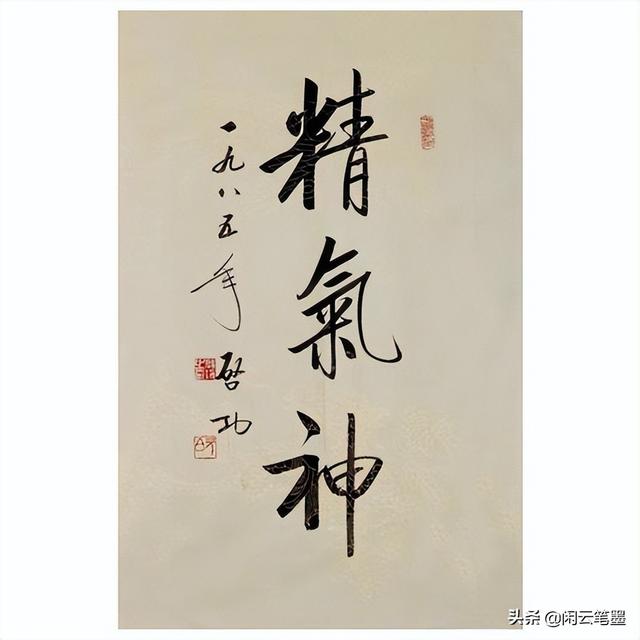 精氣神
一九八五年 啓功
头条 @闲云笔墨